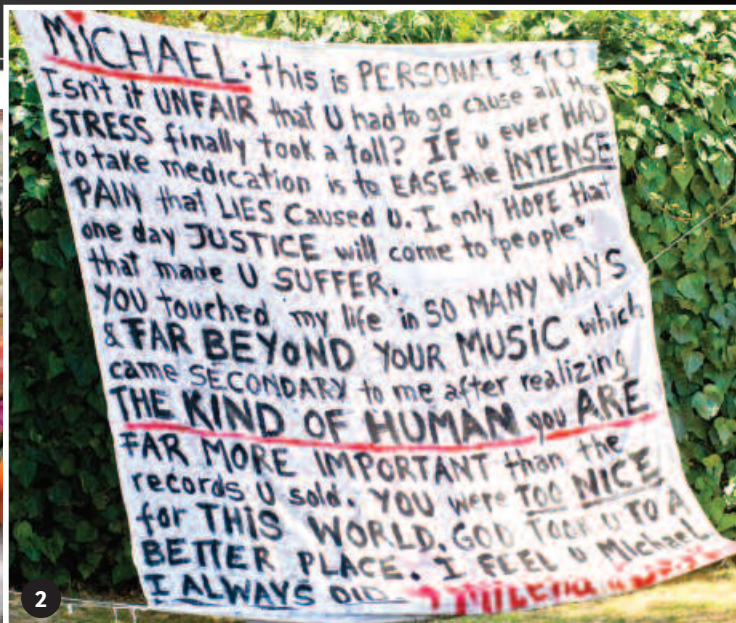 MiCHAEL: this is PERSONAL 2 4 U
Isn't it UNFAIR that U had to go cause all the
STRESS finally took a toll? IF u ever HAD
to take medication is to EASE the INTENSE
PAIN that LIES Caused U. I only HOPE that
one day JUSTICE will come to "people"
that made U SUFFER.
YOU touched my life in SO MANY WAYS
& FAR BEYOND YOUR MUSiC which
came SECONDARY to me after realizing
THE KIND OF HUMAN you ARE
FAR MORE IMPORTANT than the
records U sold. YOU were TOO NICE
for THIS WORLD. GOD TOOK U TO A
BETTER PLACE. I FEEL U Michael
I ALWAYS DID.
2